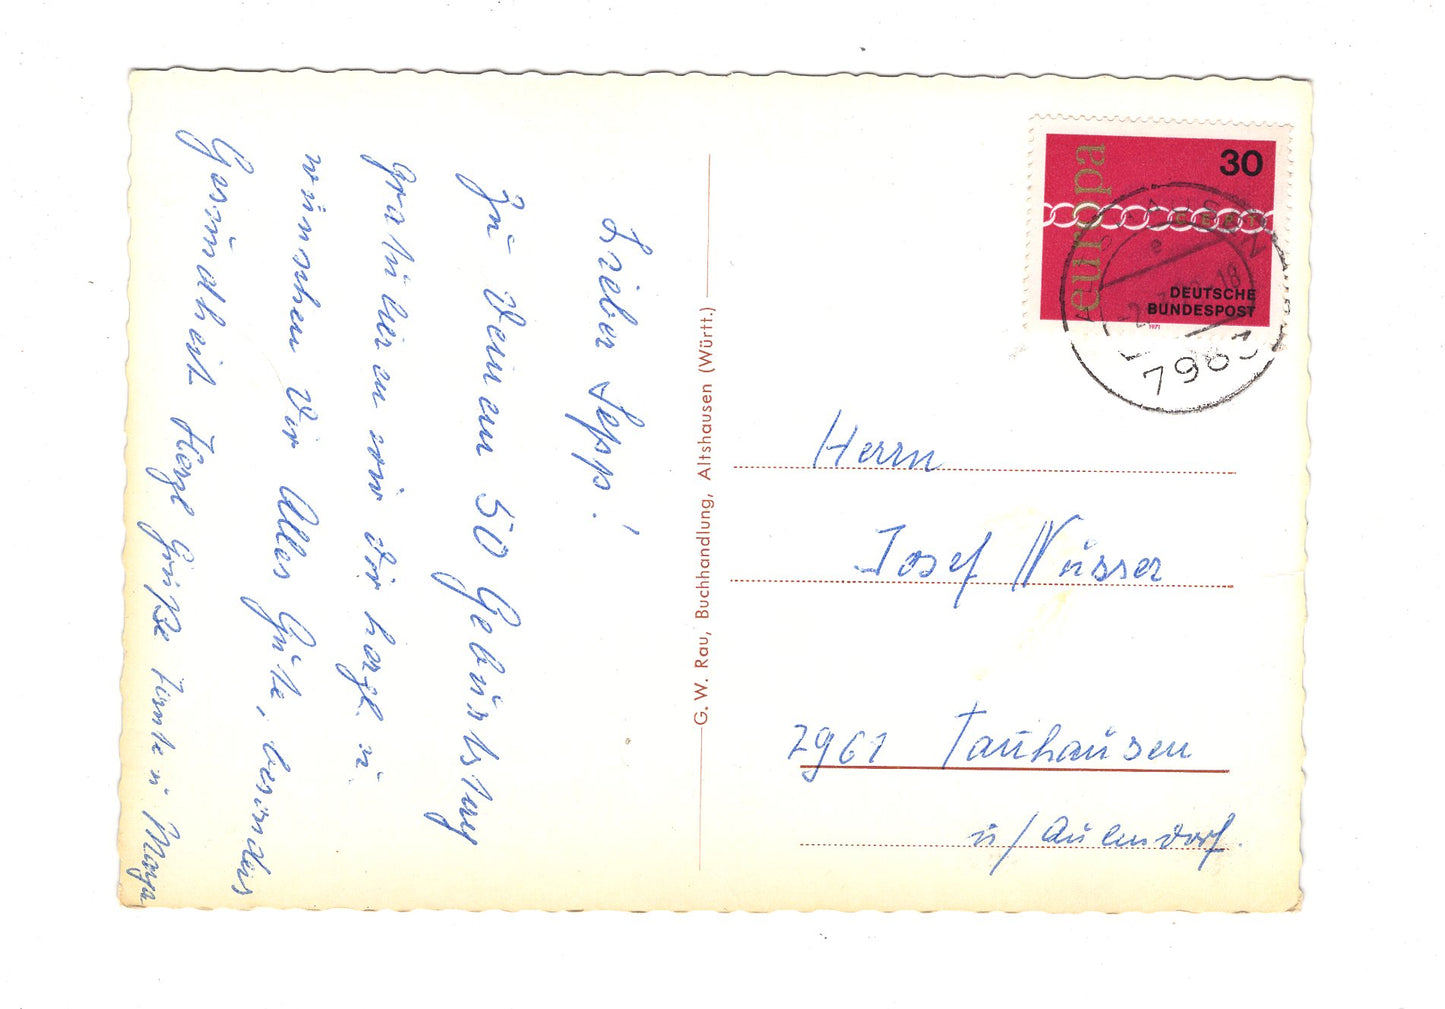 Lieber Sepp!
Zu Deinem 50 Geburtstag
gratulieren wir Dir herzl. u.
wünschen Dir Alles Gute, besonders
Gesundheit Herzl Grüße
u Maya
G. W. Rau, Buchhandlung, Altshausen (Württ.)
europa
30
CEPT
DEUTSCHE
BUNDESPOST
1971
Herrn
Josef Nusser
7961 Tauhausen
ü/ Aulendorf.